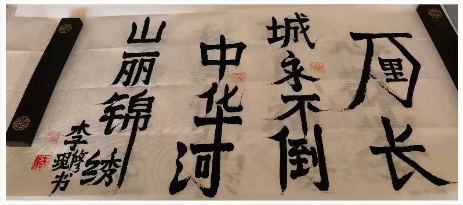 万里长
城永不倒
中华河
山丽锦绣
李修书